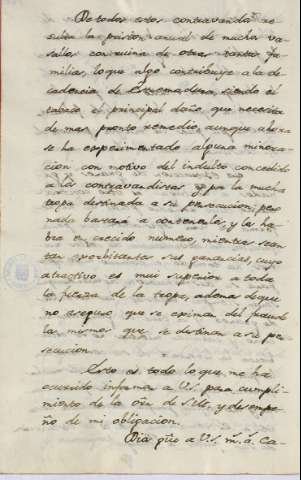 De todos estos contravandos re
sulta la prision anual de muchos va
sallos con ruina de otras tantas fa
milias, lo que algo contribuye a la de
cadencia de Extremadura, siendo el
tabaco el principal daño que necesita
de mas pronto remedio, aunque ahora
se ha experimentado alguna minora
cion con motivo del indulto concedido
a los contravandistas y por la mucha
tropa destinada a su persecucion; pero
nada bastará a contenerla, y la ha
bra en crecido numero, mientras sean
tan exorbitantes sus ganancias, cuyo
atractivo es mui superior a toda
la fuerza de la tropa, ademas de que
no aseguro que se eximan del fraude
los mismos que se destinan a su per
secucion.
Esto es todo lo que me ha
ocurrido informar a V.S. para cumpli
miento de la orn de S.M. y desempe
ño de mi obligacion.
Dios gue a V.S. m.s a.s Ca-